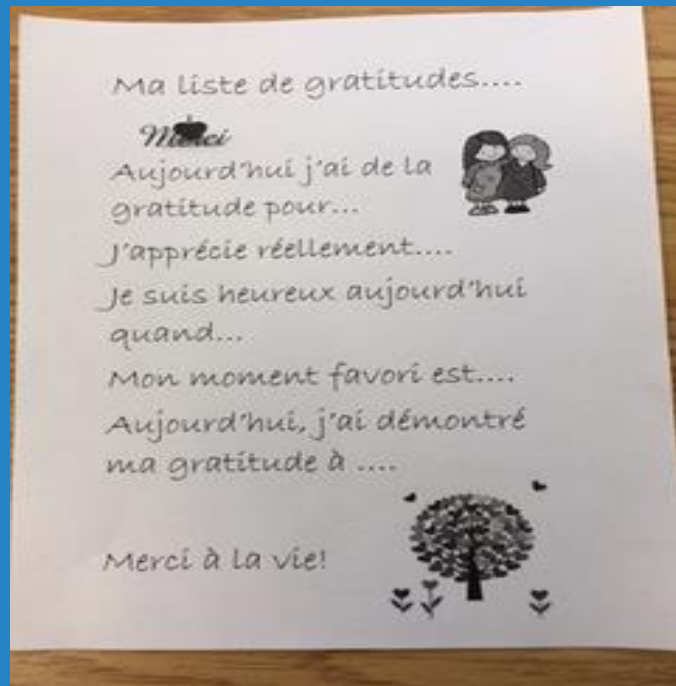 Ma liste de gratitudes....
Merci
Aujourd'hui j'ai de la
gratitude pour...
J'apprécie réellement....
Je suis heureux aujourd'hui
quand...
Mon moment favori est....
Aujourd'hui, j'ai démontré
ma gratitude à ....
Merci à la vie!